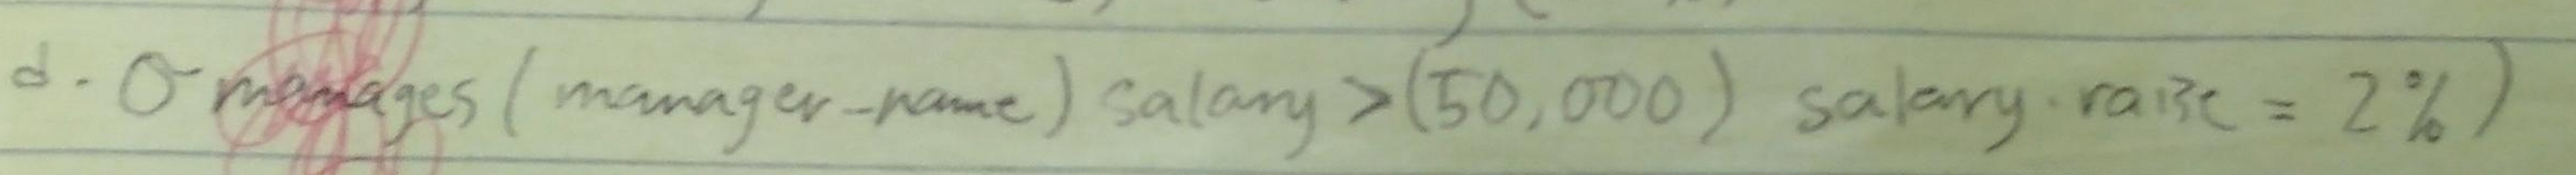 d. σ manages (manager-name) salary > (50,000) salary.raise = 2%)